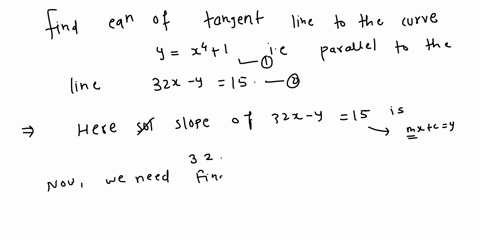 find eqn of tangent line to the curve
y = x⁴+1 i.e parallel to the
①
line 32x-y = 15. ②
⇒ Here slope of 32x-y = 15 is
→ mx+c=y
32.
Now, we need fin